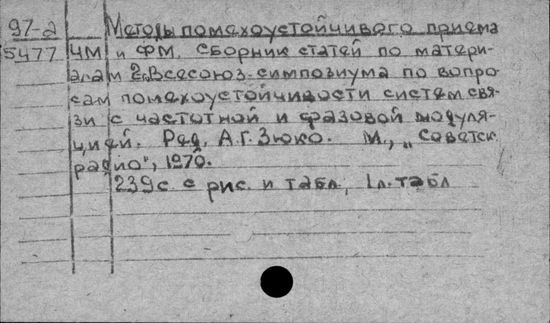 97-2 Методы помехоустойчивого приема
5477 ЧМ и ФМ. Сборник статей по матери-
алам 2 Всесоюз. симпозиума по вопро-
сам помехоустойчивости систем свя-
зи с частотной и фазовой модуля-
цией. Ред. А.Г. Зюко. М., „Советск.
радио", 1970.
239 с. с рис. и табл., 1 л. табл